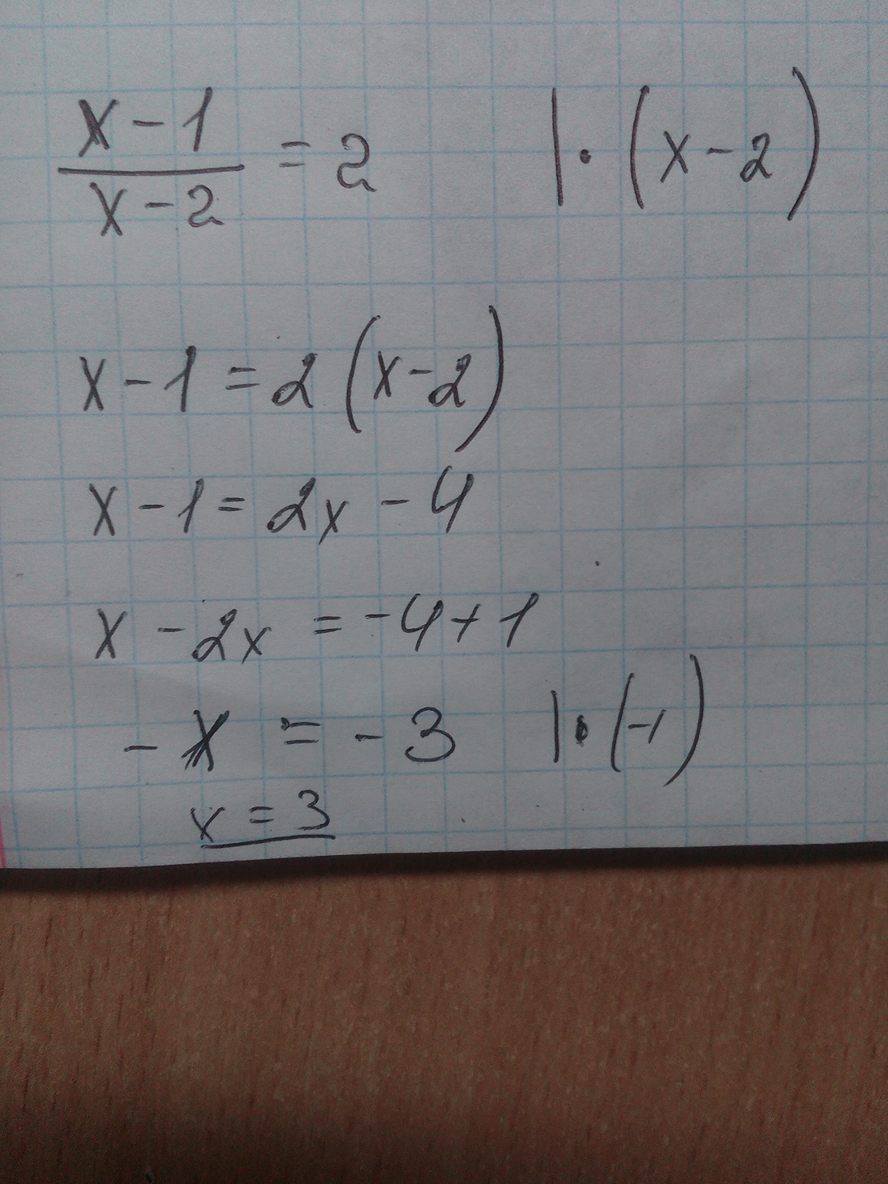 x-1/x-2 = 2 |·(x-2)
x-1=2(x-2)
x-1=2x-4
x-2x=-4+1
-x=-3 |·(-1)
x=3